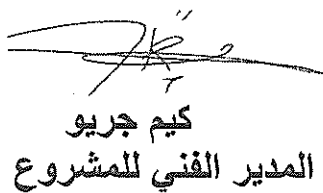 كيم جريو
المدير الفني للمشروع